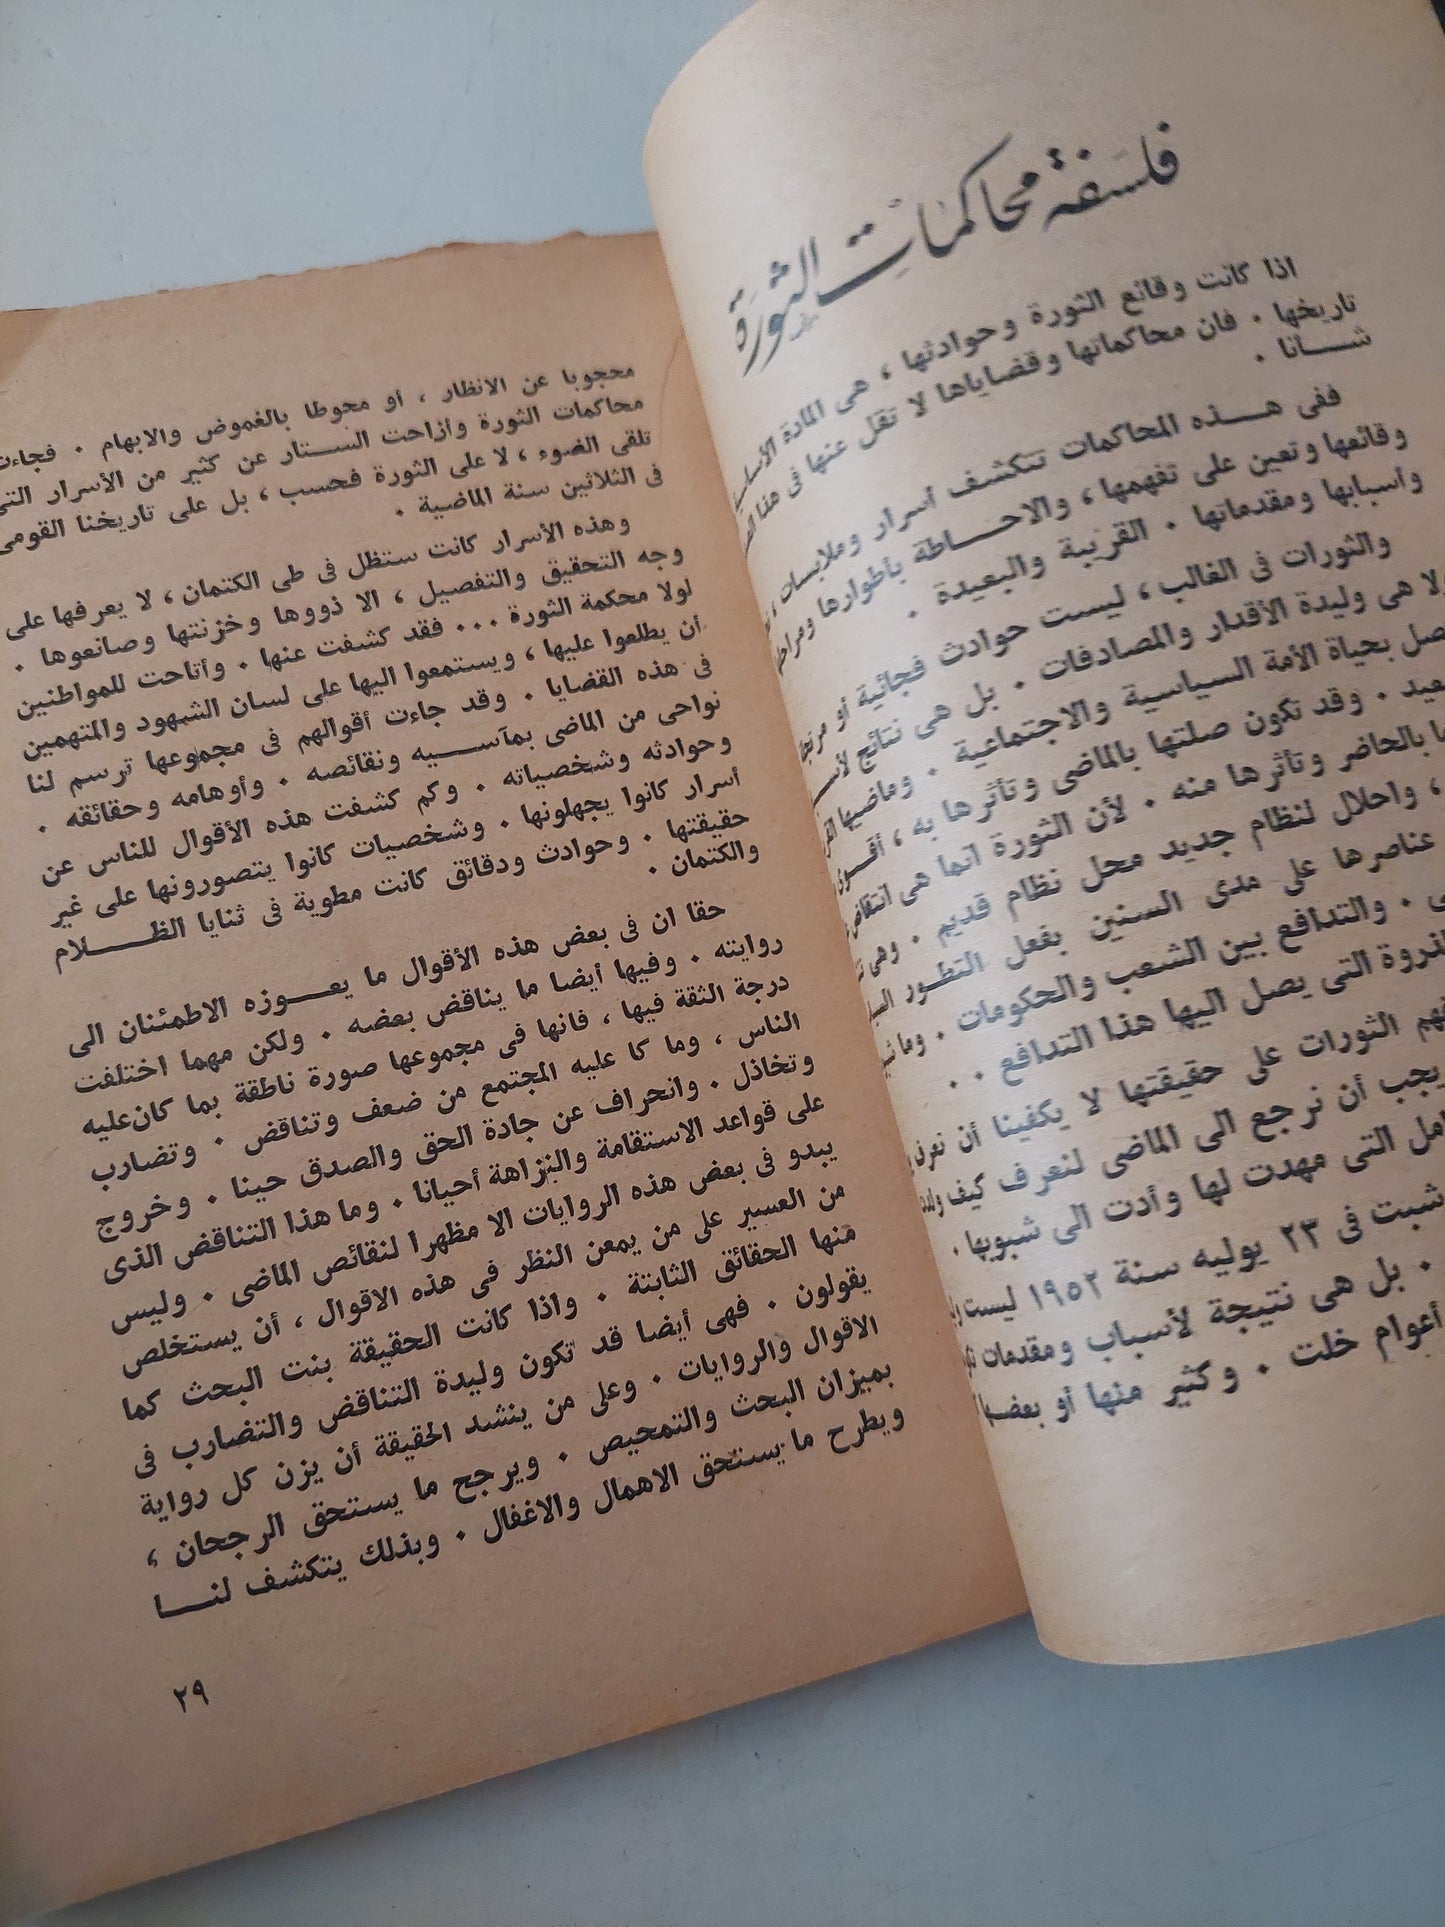 فلسفة محاكمات الثورة
اذا كانت وقائع الثورة وحوادثها ، هى المادة الأساسية
تاريخها . فان محاكماتها وقضاياها لا تقل عنها فى هذا
شــانا .
ففى هــذه المحاكمات تتكشف أسرار وملابسات ،
وقائعها وتعين على تفهمها ، والاحــاطة بأطوارها ومراحل
وأسبابها ومقدماتها . القريبة والبعيدة .
والثورات فى الغالب ، ليست حوادث فجائية أو
ولا هى وليدة الأقدار والمصادفات . بل هى نتائج
بحياة الأمة السياسية والاجتماعية . وماضيها
وقد تكون صلتها بالماضى وتأثرها به ، أقــوى
بالحاضر وتأثرها منه . لأن الثورة انما هى انتقاض
، واحلال لنظام جديد محل نظام قديم . وهى
عناصرها على مدى السنين بفعل التطــور
والتدافع بين الشعب والحكومات . وما
التى يصل اليها هذا التدافع . .
الثورات على حقيقتها لا يكفينا أن نعرف
يجب أن نرجع الى الماضى لنعرف كيف
التى مهدت لها وأدت الى شبوبها .
شبت فى ٢٣ يوليه سنة ١٩٥٢ ليست
. بل هى نتيجة لأسباب ومقدمات
أعوام خلت . وكثير منها أو بعضها
محجوبا عن الانظار ، أو محوطا بالغموض والابهام . فجاءت
محاكمات الثورة وأزاحت الســتار عن كثير من الأسرار التى
تلقى الضوء ، لا على الثورة فحسب ، بل على تاريخنا القومى
فى الثلاثين سنة الماضية .
وهذه الأسرار كانت ستظل فى طى الكتمان ، لا يعرفها على
وجه التحقيق والتفصيل ، الا ذووها وخزنتها وصانعوها .
لولا محكمة الثورة ... فقد كشفت عنها . وأتاحت للمواطنين
أن يطلعوا عليها ، ويستمعوا اليها على لسان الشهود والمتهمين
فى هذه القضايا . وقد جاءت أقوالهم فى مجموعها ترسم لنا
نواحى من الماضى بمآســيه ونقائصه . وأوهامه وحقائقه .
وحوادثه وشخصياته . وكم كشفت هذه الأقوال للناس عن
أسرار كانوا يجهلونها . وشخصيات كانوا يتصورونها على غير
حقيقتها . وحوادث ودقائق كانت مطوية فى ثنايا الظــلام
والكتمان .
حقا ان فى بعض هذه الأقوال ما يعــوزه الاطمئنان الى
روايته . وفيها أيضا ما يناقض بعضه . ولكن مهما اختلفت
درجة الثقة فيها ، فانها فى مجموعها صورة ناطقة بما كان عليه
الناس ، وما كا عليه المجتمع من ضعف وتناقض . وتضارب
وتخاذل . وانحراف عن جادة الحق والصدق حينا . وخروج
على قواعد الاستقامة والنزاهة أحيانا . وما هذا التناقض الذى
يبدو فى بعض هذه الروايات الا مظهرا لنقائص الماضى . وليس
من العسير على من يمعن النظر فى هذه الاقوال ، أن يستخلص
منها الحقائق الثابتة . واذا كانت الحقيقة بنت البحث كما
يقولون . فهى أيضا قد تكون وليدة التناقض والتضارب فى
الاقوال والروايات . وعلى من ينشد الحقيقة أن يزن كل رواية
بميزان البحث والتمحيص . ويرجح ما يستحق الرجحان ،
ويطرح ما يستحق الاهمال والاغفال . وبذلك يتكشف لنــا
٢٩